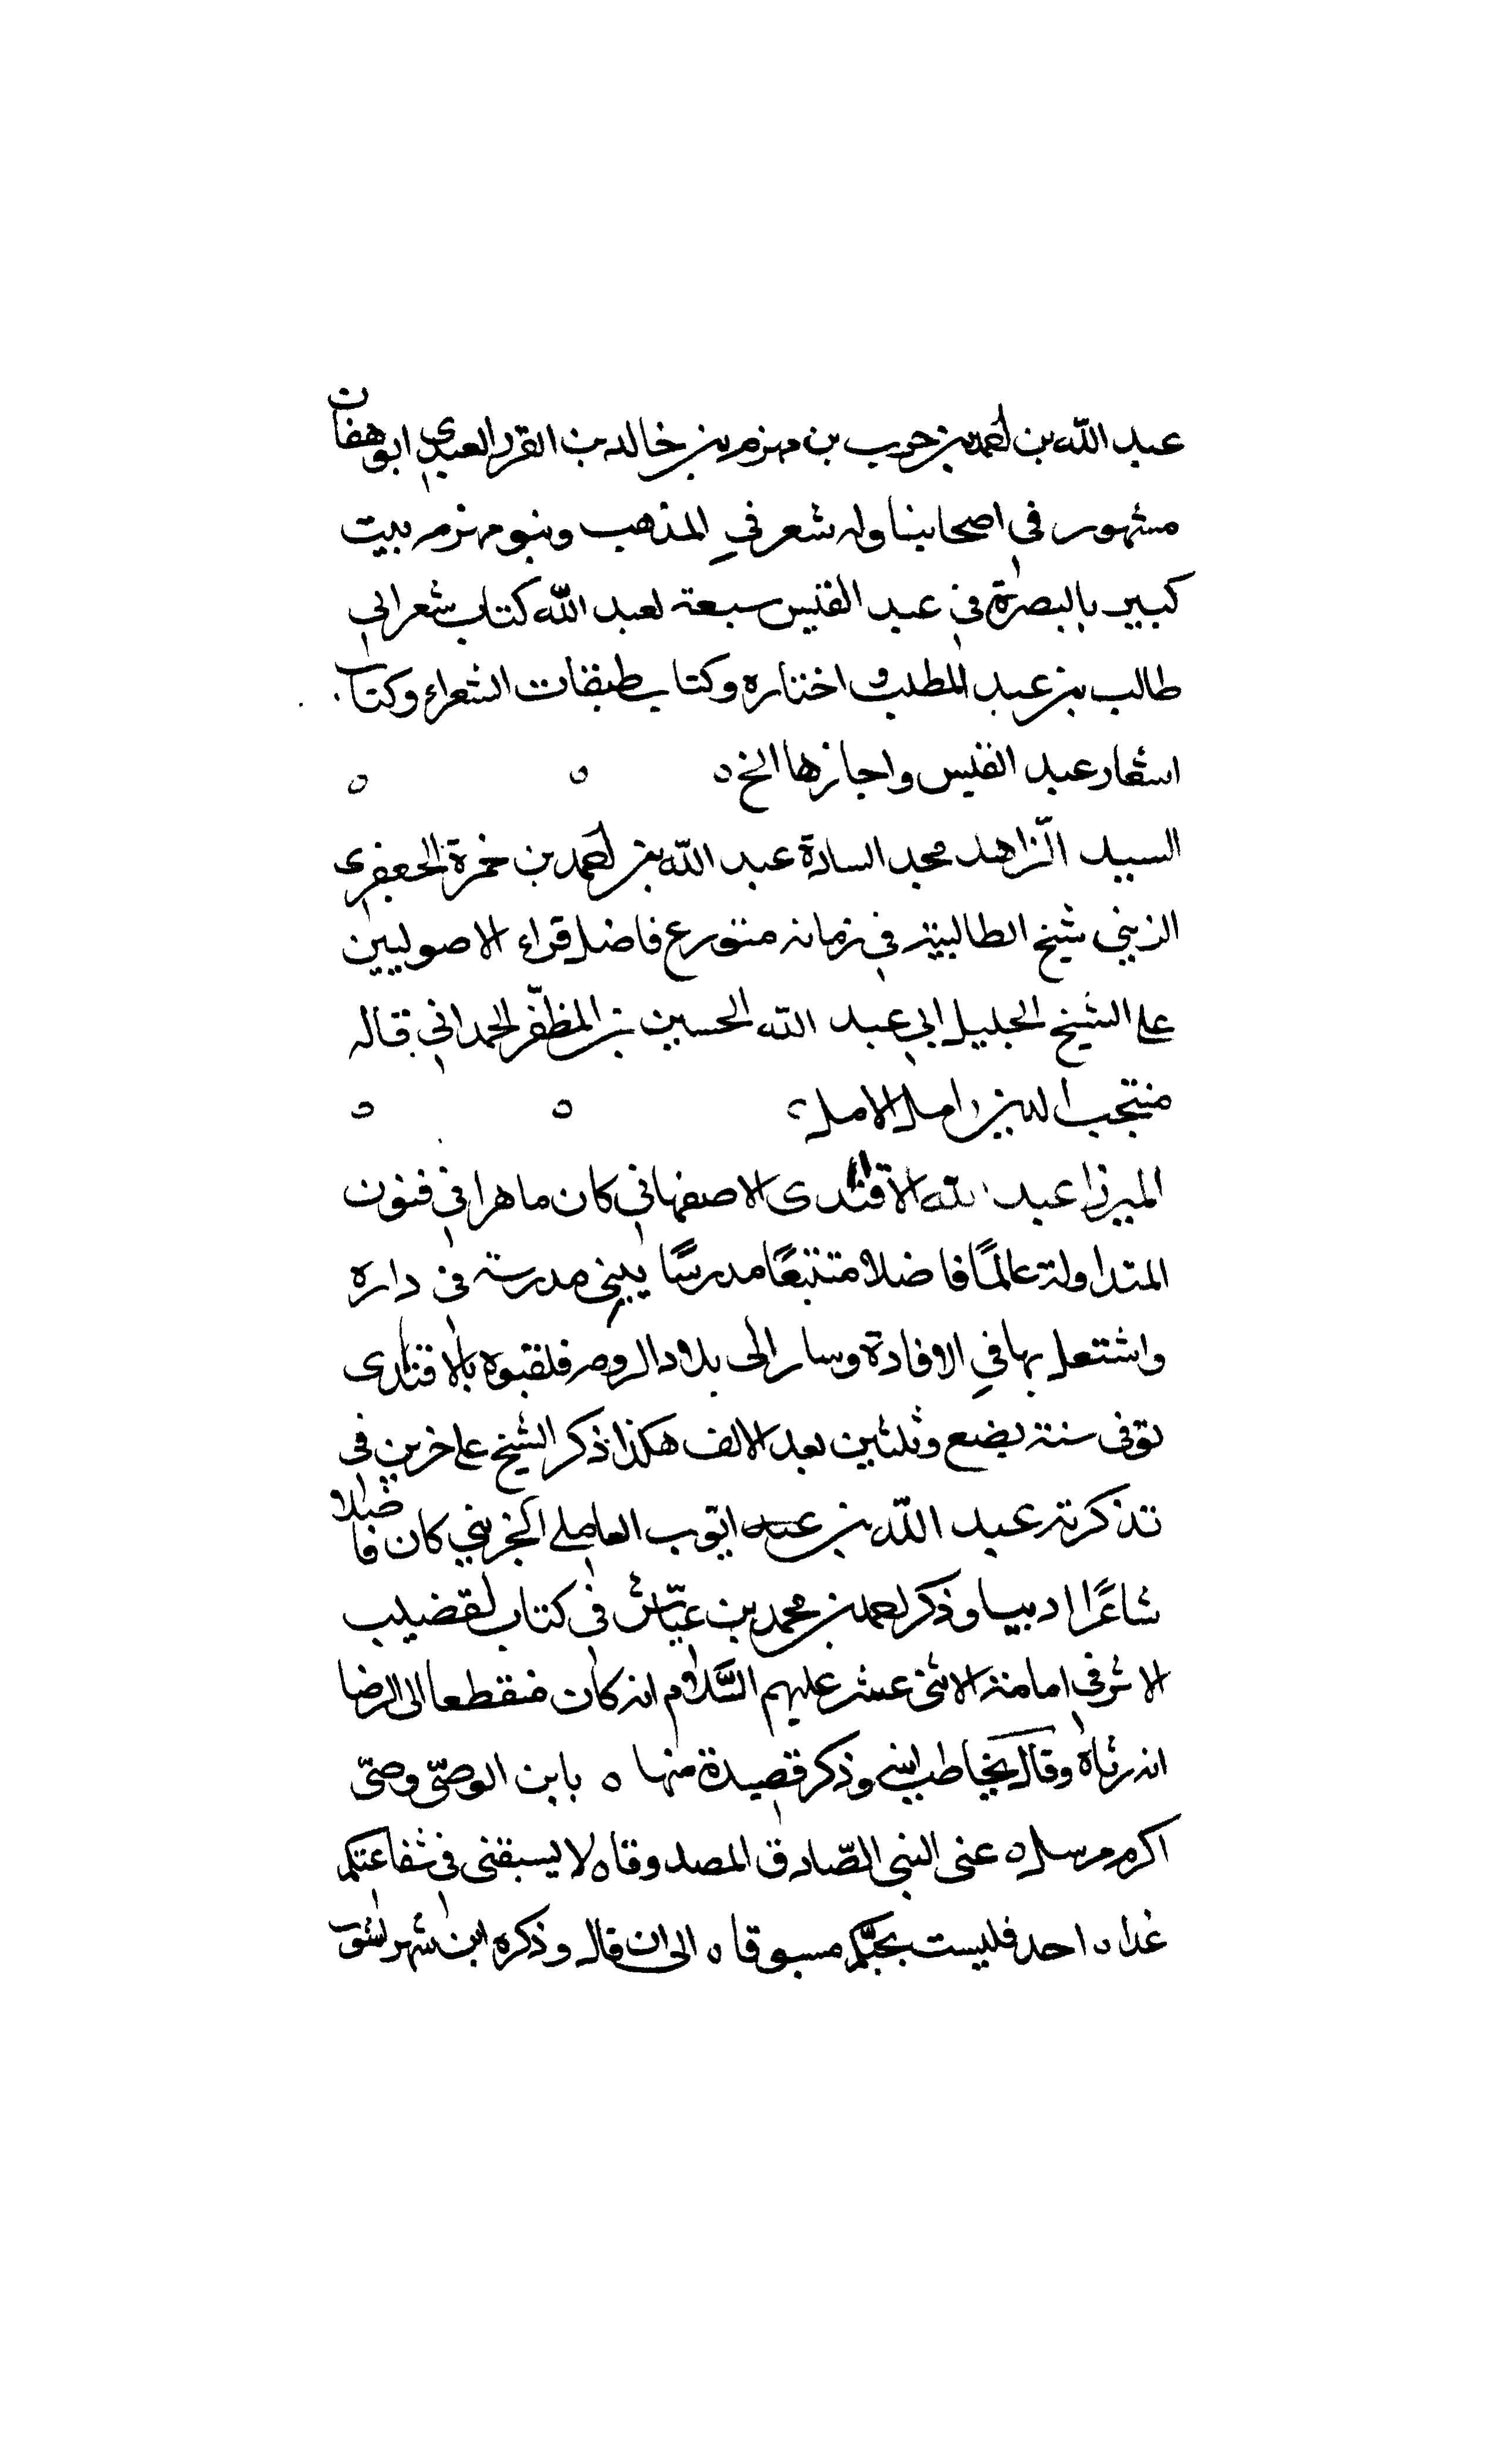 عبد الله بن احمد بن حرب بن مهزم بن خالد بن الفزر العبدي ابو هفان
مشهور في اصحابنا وله شعر في المذهب وبنو مهزم بيت
كبير بالبصرة في عبد القيس سبعة لعبد الله كتاب شعر ابي
طالب بن عبد المطلب و اختاره وكتاب طبقات الشعراء وكتاب
اشعار عبد القيس واجازها الخ ه ه ه
السيد الزّاهد مجد السادة عبد الله بن احمد بن حمزة الجعفرى
الزيني شيخ الطالبية في زمانه متورع فاضل قراء الاصوليين
على الشيخ الجليل ابي عبد الله الحسين بن المظفّر الحمداني قاله
منتجب الدين امل الامل ه ه
الميرزا عبد الله الافندى الاصفهاني كان ماهرا في فنون
المتداولة عالمًا فاضلا متتبعًا مدرسًا يبني مدرسة في داره
واشتعل بها في الافادة وسار الى بلاد الروم فلقبوه بالافندى
توفى سنة بضع وثلثين بعد الالف هكذا ذكر الشيخ على حزين في
تذكرته عبد الله بن ايّوب العاملي الخزيني كان فاضلا
شاعرًا اديبا وذكر احمد بن محمد بن عيّاش في كتاب لقضيب
الاثر في امامة الاثنى عشر عليهم السَّلام انه كان منقطعا الى الرضا
انه رثاه وقال يخاطب ابنه وذكر قصيدة منها ه يابن الوصىّ وصىّ
اكرم مرسل ه عنى النبي الصّادق المصدوقا ه لا يسبقنى في شفاعتكم
غدا ه احد فليست بحبّكم مسبوقا ه الى ان قال وذكره ابن شهراشوب